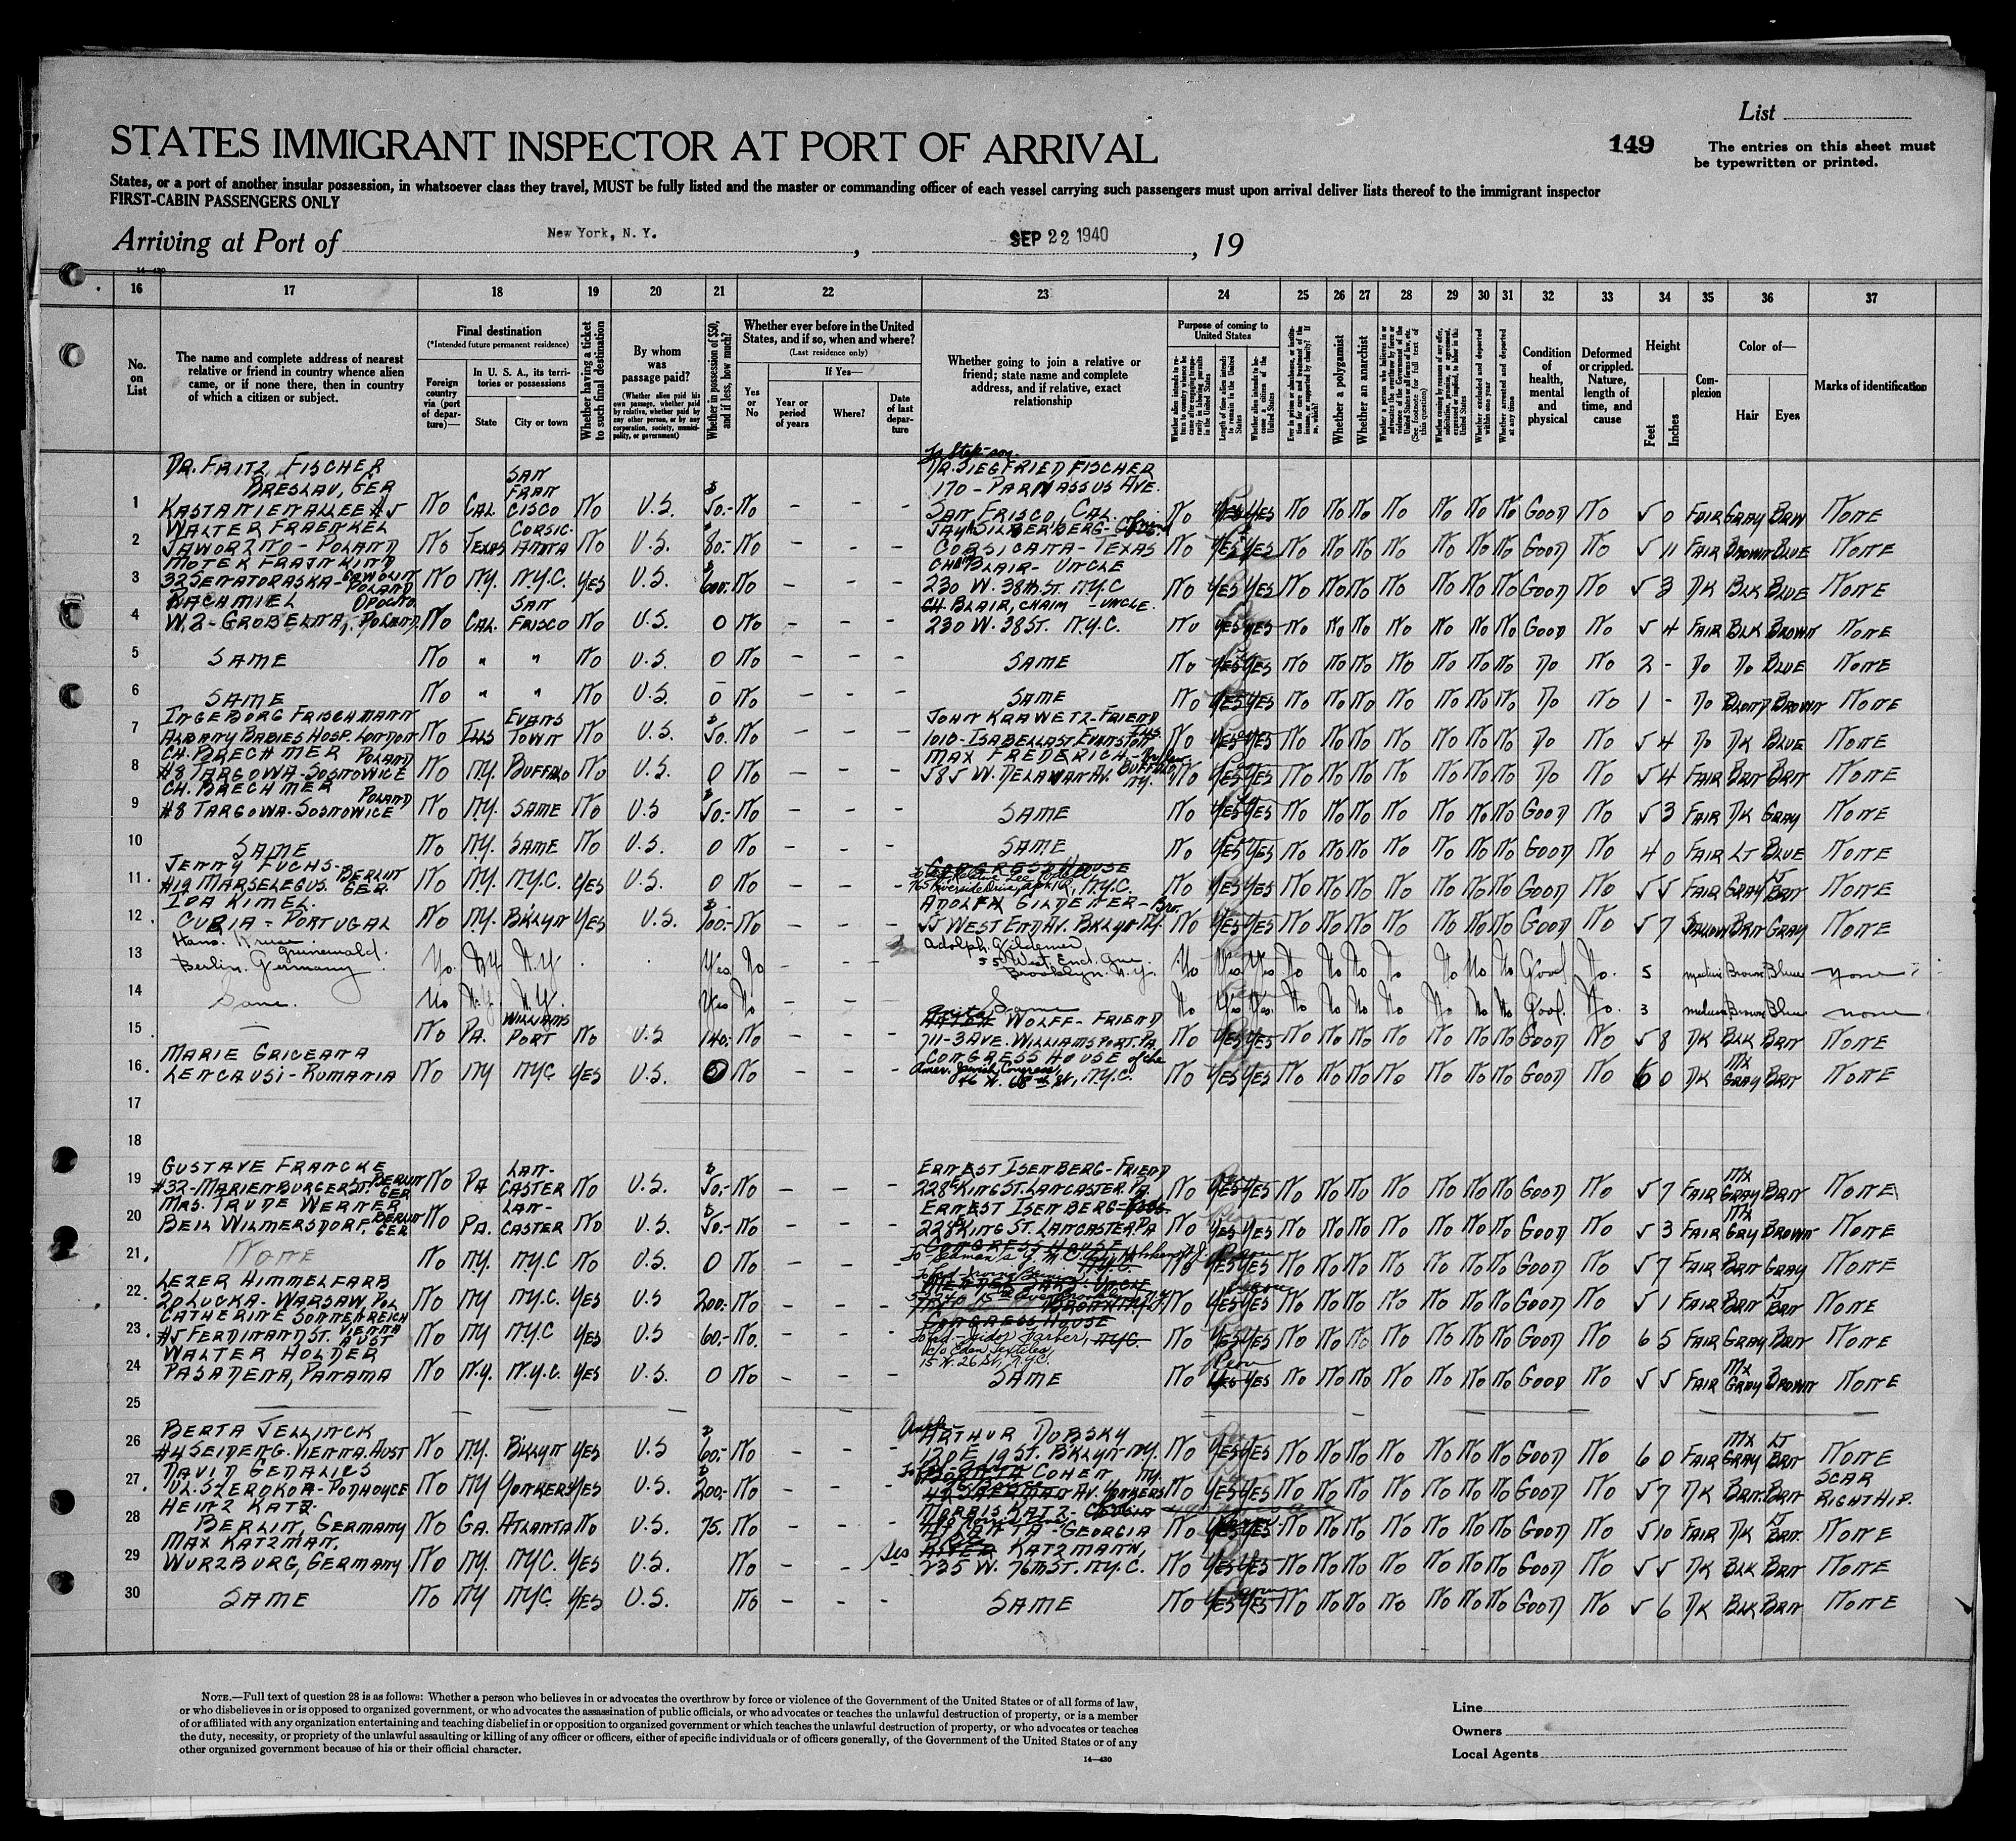 List
STATES IMMIGRANT INSPECTOR AT PORT OF ARRIVAL
149
The entries on this sheet must
be typewritten or printed.
States, or a port of another insular possession, in whatsoever class they travel, MUST be fully listed and the master or commanding officer of each vessel carrying such passengers must upon arrival deliver lists thereof to the immigrant inspector
FIRST-CABIN PASSENGERS ONLY
Arriving at Port of New York, N. Y., SEP 22 1940, 19
14—430
16 17 18 19 20 21 22 23 24 25 26 27 28 29 30 31 32 33 34 35 36 37
No. on List
The name and complete address of nearest
relative or friend in country whence alien
came, or if none there, then in country
of which a citizen or subject.
Final destination
(*Intended future permanent residence)
Foreign country via (port of departure)—
In U. S. A., its territories or possessions
State
City or town
Whether having a ticket to such final destination
By whom was passage paid?
(Whether alien paid his own passage, whether paid by relative, whether paid by any other person, or by any corporation, society, municipality, or government)
Whether in possession of $50, and if less, how much?
Whether ever before in the United States, and if so, when and where?
(Last residence only)
Yes or No
If Yes—
Year or period of years
Where?
Date of last departure
Whether going to join a relative or
friend; state name and complete
address, and if relative, exact
relationship
Purpose of coming to United States
Length of time alien intends to remain in the United States
Whether alien intends to become a citizen of the United States
Whether a polygamist
Whether an anarchist
Whether excluded and deported within one year
Whether arrested and deported at any time
Condition of health, mental and physical
Deformed or crippled. Nature, length of time, and cause
Height
Feet
Inches
Complexion
Color of—
Hair
Eyes
Marks of identification
1 DR. FRITZ FISCHER
BRESLAU, GER
KASTANIENALLEE #5 NO CAL. SAN FRANCISCO NO U.S. $50.- NO - - - To Step-son. DR. SIEGFRIED FISCHER
170 - PARNASSUS AVE.
SAN FRISCO, CAL. NO YES YES NO NO NO NO NO NO NO GOOD NO 5 0 FAIR GRAY BRN NONE
2 WALTER FRAENKEL
JAWORZNO - POLAND NO TEXAS CORSICANNA NO U.S. $80.- NO - - - JAY SILBERBERG
CORSICANA - TEXAS NO YES YES NO NO NO NO NO NO NO GOOD NO 5 11 FAIR BROWN BLUE NONE
3 MOTEK FRAJNKIND
32 SENATORASKA - POLAND NO NY. N.Y.C. YES U.S. $600.- NO - - - BLAIR - UNCLE
230 W. 38th ST. N.Y.C NO YES YES NO NO NO NO NO NO NO GOOD NO 5 3 DK BLK BLUE NONE
4 KACHMIEL OPOCNO
W. 2 - GROBELNA, POLAND. NO CAL. SAN FRISCO NO U.S. 0 NO - - - CH BLAIR, CHAIM - UNCLE.
230 W. 38 ST. N.Y.C. NO YES YES NO NO NO NO NO NO NO GOOD NO 5 4 FAIR BLK BROWN NONE
5 SAME NO " " NO U.S. 0 NO - - - SAME NO YES YES NO NO NO NO NO NO NO DO NO 2 - DO DO BLUE NONE
6 SAME NO " " NO U.S. 0 NO - - - SAME NO YES YES NO NO NO NO NO NO NO DO NO 1 - DO BLOND BROWN NONE
7 INGEBORG FRISCHMANN
ALBANY BABIES HOSP. LONDON NO ILLS EVANSTOWN NO U.S. $50. NO - - - JOHN KRAWETZ - FRIEND
1010 - ISABELLA ST EVANSTON ILLS. NO YES YES NO NO NO NO NO NO NO DO NO 5 4 DO DK BLUE NONE
8 CH. BRECHMER POLAND
#8 TARGOWA - SOSNOWICE NO NY. BUFFALO NO U.S. 0 NO - - - MAX FREDERICH -
585 W. DELAWAN AV. BUFFALO NY. NO YES YES NO NO NO NO NO NO NO DO NO 5 4 FAIR BRN BRN NONE
9 CH. BRECHMER POLAND
#8 TARGOWA - SOSNOWICE NO NY. SAME NO U.S $50.- NO - - - SAME NO YES YES NO NO NO NO NO NO NO GOOD NO 5 3 FAIR DK GRAY NONE
10 SAME NO NY. SAME NO U.S. 0 NO - - - SAME NO YES YES NO NO NO NO NO NO NO GOOD NO 4 0 FAIR LT BLUE NONE
11. JENNY FUCHS - BERLIN
#19 MARSELEGUS. GER. NO NY. N.Y.C. YES U.S. 0 NO - - - CONGRESS HOUSE
765 Riverside Drive, N.Y.C. NO YES YES NO NO NO NO NO NO NO GOOD NO 5 5 FAIR GRAY LT BRN NONE
12. IDA KIMEL.
CURIA - PORTUGAL NO NY. BKLYN YES U.S. $100.- NO - - - ADOLPH GILDENER - Bro.
55 WEST END AV. BKLYN NY. NO YES YES NO NO NO NO NO NO NO GOOD NO 5 7 SALLOW BRN GRAY NONE
13 Hans. Kruse.
Grunewald.
Berlin. Germany. No N.Y N.Y. Yes No - - Adolph. Gildener
55 West. End. Ave.
Brooklyn. N.Y. No Yes Yes No No No No No No No Good No. 5 medium Brown Blue none
14 Same. No N.Y. N.Y. Yes No - - Same No Yes Yes. No No No No No No No Good. No. 3 medium Brown Blue none
15 — NO PA. WILLIAMSPORT NO U.S 140.- NO - - - WOLFF - FRIEND
711 - 3 AVE. WILLIAMSPORT. PA. NO YES YES NO NO NO NO NO NO NO GOOD NO 5 8 DK BLK BRN NONE
16. MARIE GRICEANA
LENCAUSI - RUMANIA NO NY NYC YES U.S. 0 NO - - - CONGRESS HOUSE of the
Amer. Jewish Congress,
W. 68th St., N.Y.C. NO YES YES NO NO NO NO NO NO NO GOOD NO 6 0 DK MX GRAY BRN NONE
17
18
19 GUSTAVE FRANCKE
#32 - MARIENBURGER ST. BERLIN GER NO PA LANCASTER NO U.S. $50.- NO - - - ERNEST ISENBERG - FRIEND
228 E KING ST. LANCASTER. PA. NO YES YES NO NO NO NO NO NO NO GOOD NO 5 7 FAIR MX GRAY BRN NONE
20 MRS. TRUDE WERNER
BEIL WILMERSDORF, BERLIN GER NO PA. LANCASTER NO U.S. $50.- NO - - - ERNEST ISENBERG
228 E KING ST. LANCASTER PA NO YES YES NO NO NO NO NO NO NO GOOD NO 5 3 FAIR MX GRAY BROWN NONE
21. NONE NO NY. NY.C NO U.S. 0 NO - - - CONGRESS HOUSE
NYC. NO YES YES NO NO NO NO NO NO NO GOOD NO 5 7 FAIR BRN GRAY NONE
22. LEZER HIMMELFARB
20 LUCKA - WARSAW, POL NO NY NY.C. YES U.S 200.- NO - - - NO YES YES NO NO NO NO NO NO NO GOOD NO 5 1 FAIR BRN LT BRN NONE
23. CATHERINE SONNENREICH
#5 FERDINAND ST. VIENNA AUST NO NY NY.C YES U.S 60.- NO - - - CONGRESS HOUSE
Isidor Farber, NYC.
c/o Eden Textiles,
15 W. 26 St., N.Y.C. NO YES YES NO NO NO NO NO NO NO GOOD NO 6 5 FAIR GRAY BRN NONE
24 WALTER HOLDER
PASADENA, PANAMA NO N.Y. N.Y.C. YES U.S. 0 NO - - - SAME NO YES YES NO NO NO NO NO NO NO GOOD NO 5 5 FAIR MX GRAY BROWN NONE
25
26 BERTA JELLINCK
#4 SEIDENG. VIENNA. AUST NO NY. B'KLYN YES U.S $60.- NO - - - ARTHUR DUBSKY
120 E 19 ST. B'KLYN NY. NO YES YES NO NO NO NO NO NO NO GOOD NO 6 0 FAIR MX GRAY LT BRN NONE
27. DAVID GEDALIES
UL. SZEROKOA - PODHOYCE NO NY YONKERS YES U.S. $200.- NO - - - COHEN NY.
AV. YONKERS NO YES YES NO NO NO NO NO NO NO GOOD NO 5 7 DK BRN. BRN SCAR RIGHT HIP.
28 HEINZ KATZ.
BERLIN, GERMANY NO GA. ATLANTA NO U.S. 75. NO - - - MORRIS KATZ -
ATLANTA - GEORGIA NO YES YES NO NO NO NO NO NO NO GOOD NO 5 10 FAIR DK LT BRN. NONE
29 MAX KATZMAN.
WURZBURG, GERMANY NO NY. NYC. YES U.S. NO - - KATZMANN,
235 W. 76th ST. NY.C. NO YES YES NO NO NO NO NO NO NO GOOD NO 5 5 DK BLK BRN NONE
30 SAME NO NY NYC. YES U.S. NO - - - SAME NO YES YES NO NO NO NO NO NO NO GOOD NO 5 6 DK BLK BRN NONE
NOTE.—Full text of question 28 is as follows: Whether a person who believes in or advocates the overthrow by force or violence of the Government of the United States or of all forms of law,
or who disbelieves in or is opposed to organized government, or who advocates the assassination of public officials, or who advocates or teaches the unlawful destruction of property, or is a member
of or affiliated with any organization entertaining and teaching disbelief in or opposition to organized government or which teaches the unlawful destruction of property, or who advocates or teaches
the duty, necessity, or propriety of the unlawful assaulting or killing of any officer or officers, either of specific individuals or of officers generally, of the Government of the United States or of any
other organized government because of his or their official character.
14—430
Line
Owners
Local Agents